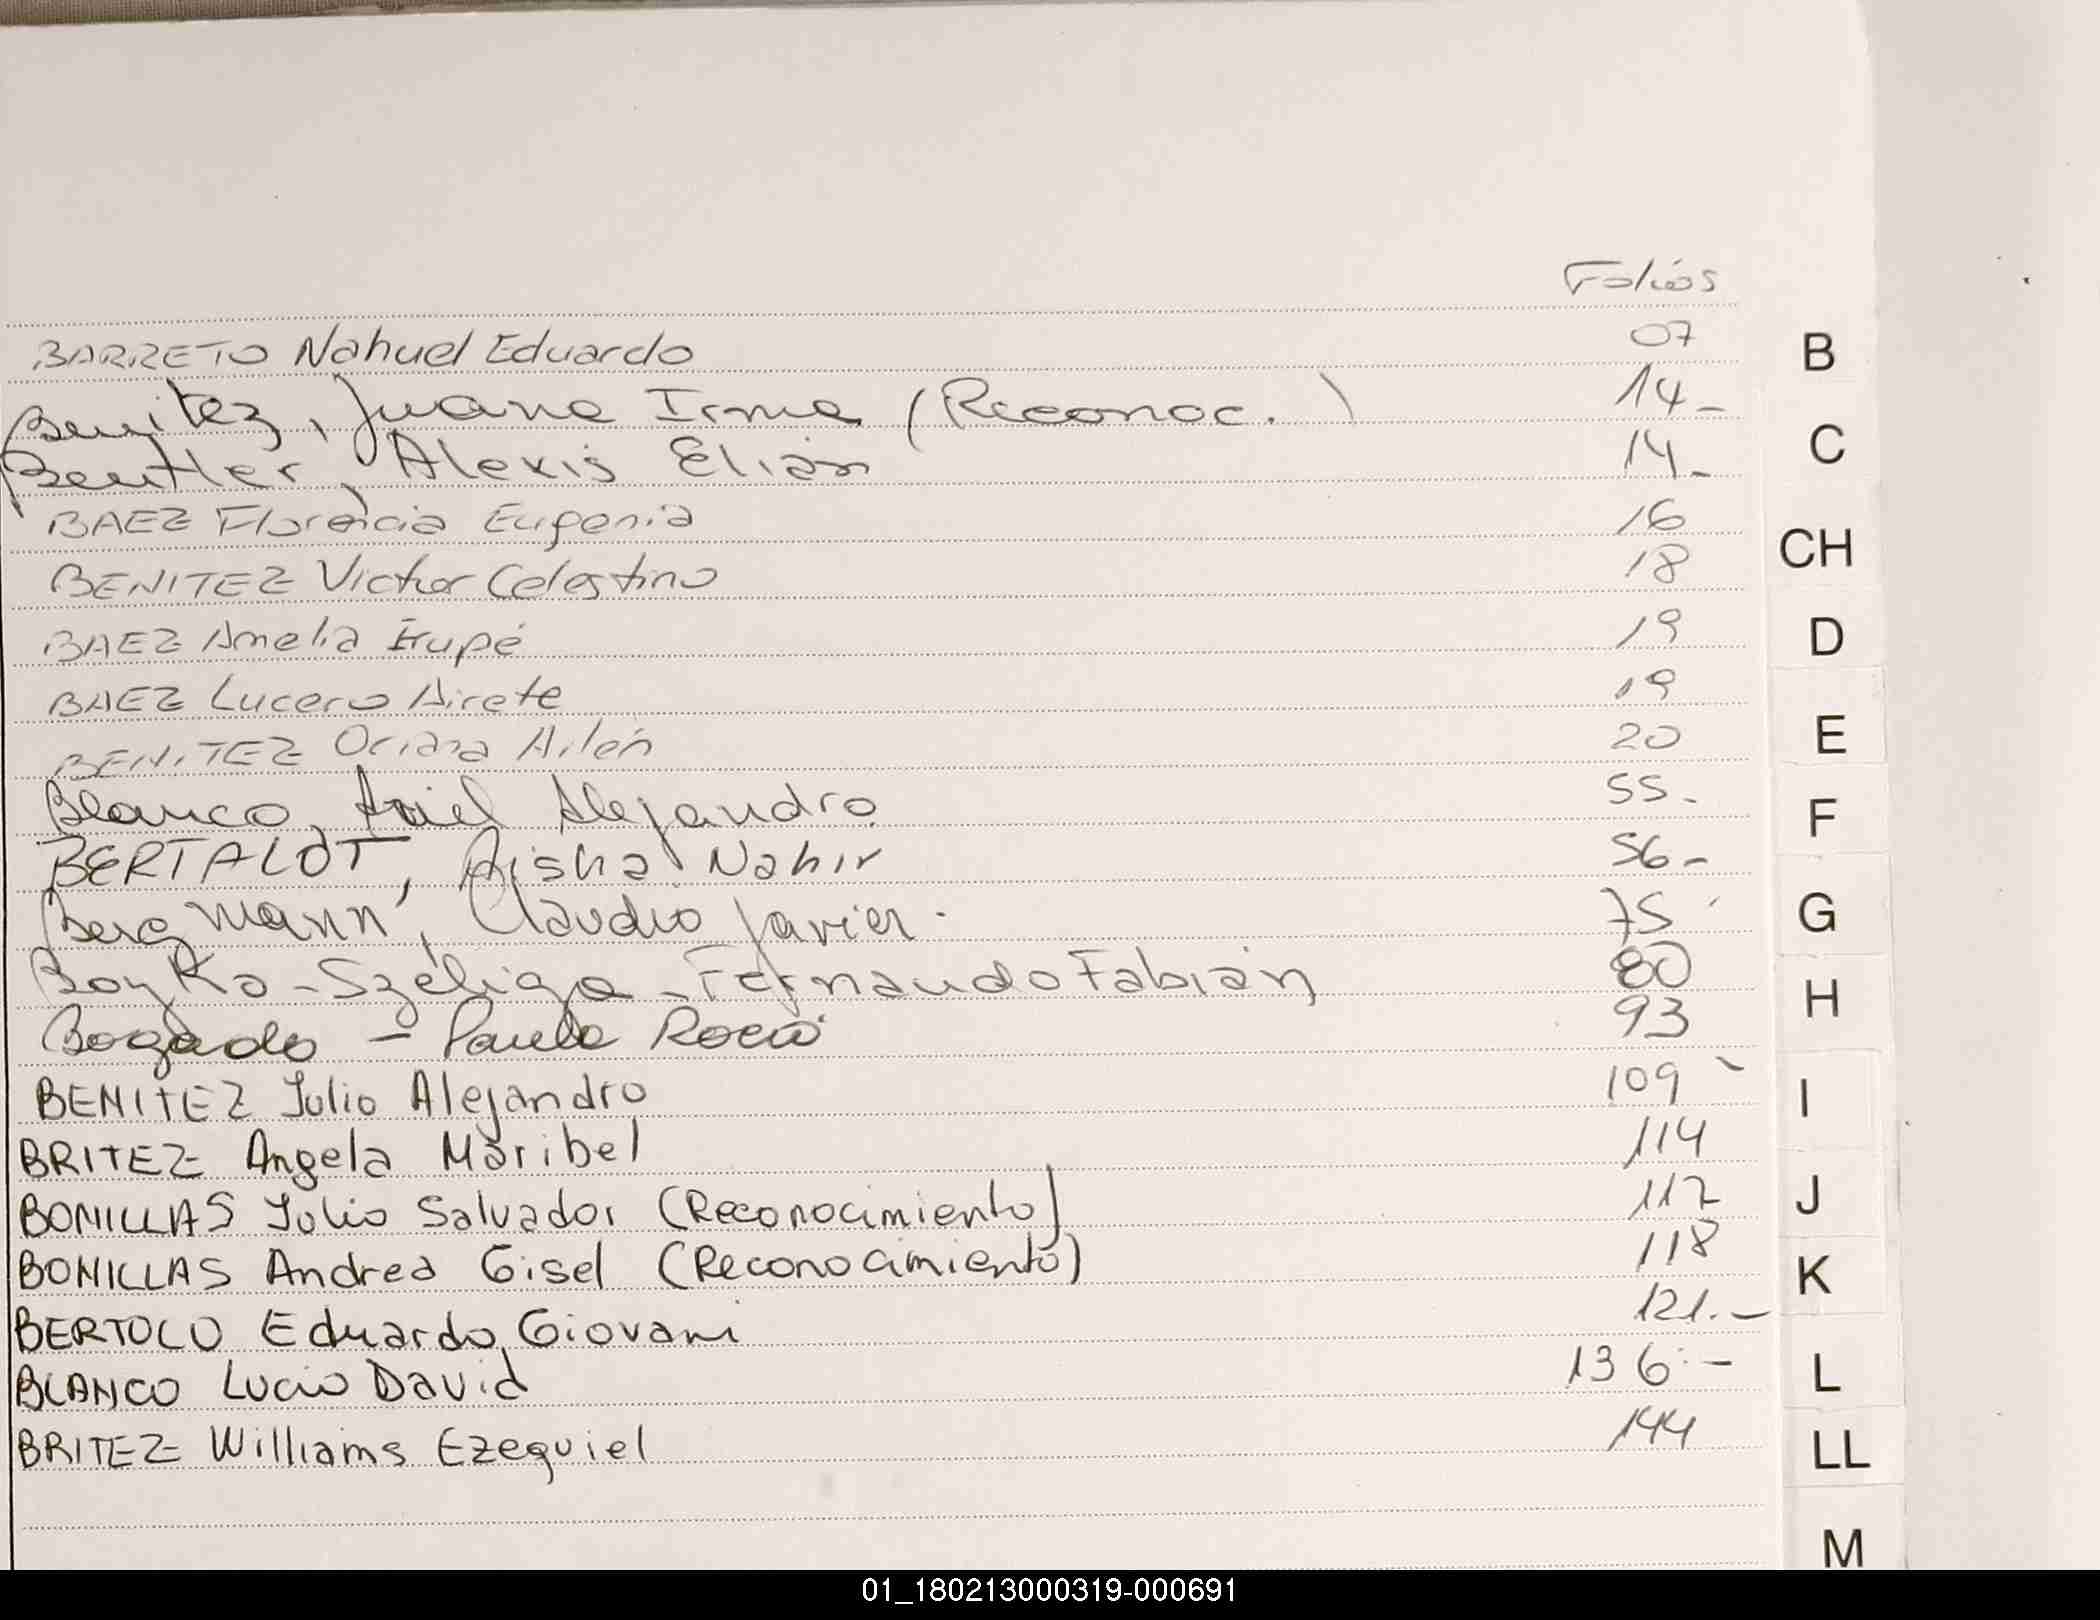 Folios
BARRETO Nahuel Eduardo 07
Benitez, Juana Irma (Reconoc.) 14-
Beutler, Alexis Elián 14-
BAEZ Florencia Eugenia 16
BENITEZ Victor Celestino 18
BAEZ Amelia Irupé 19
BAEZ Lucero Airete 19
BENITEZ Oriana Ailén 20
Blanco, Ariel Alejandro. 55-
BERTALOT, Aisha Nahir 56-
Bergmann, Claudio Javier. 75
Boyko-Szeliga-Fernando Fabián 80
Bogado - Paula Rocio 93
BENITEZ Julio Alejandro 109-
BRITEZ Angela Maribel 114
BONILLAS Julio Salvador (Reconocimiento) 117
BONILLAS Andrea Gisel (Reconocimiento) 118
BERTOLO Eduardo Giovani 121.-
BLANCO Lucio David 136.-
BRITEZ Williams Ezequiel 144
B
C
CH
D
E
F
G
H
I
J
K
L
LL
M
01_180213000319-000691